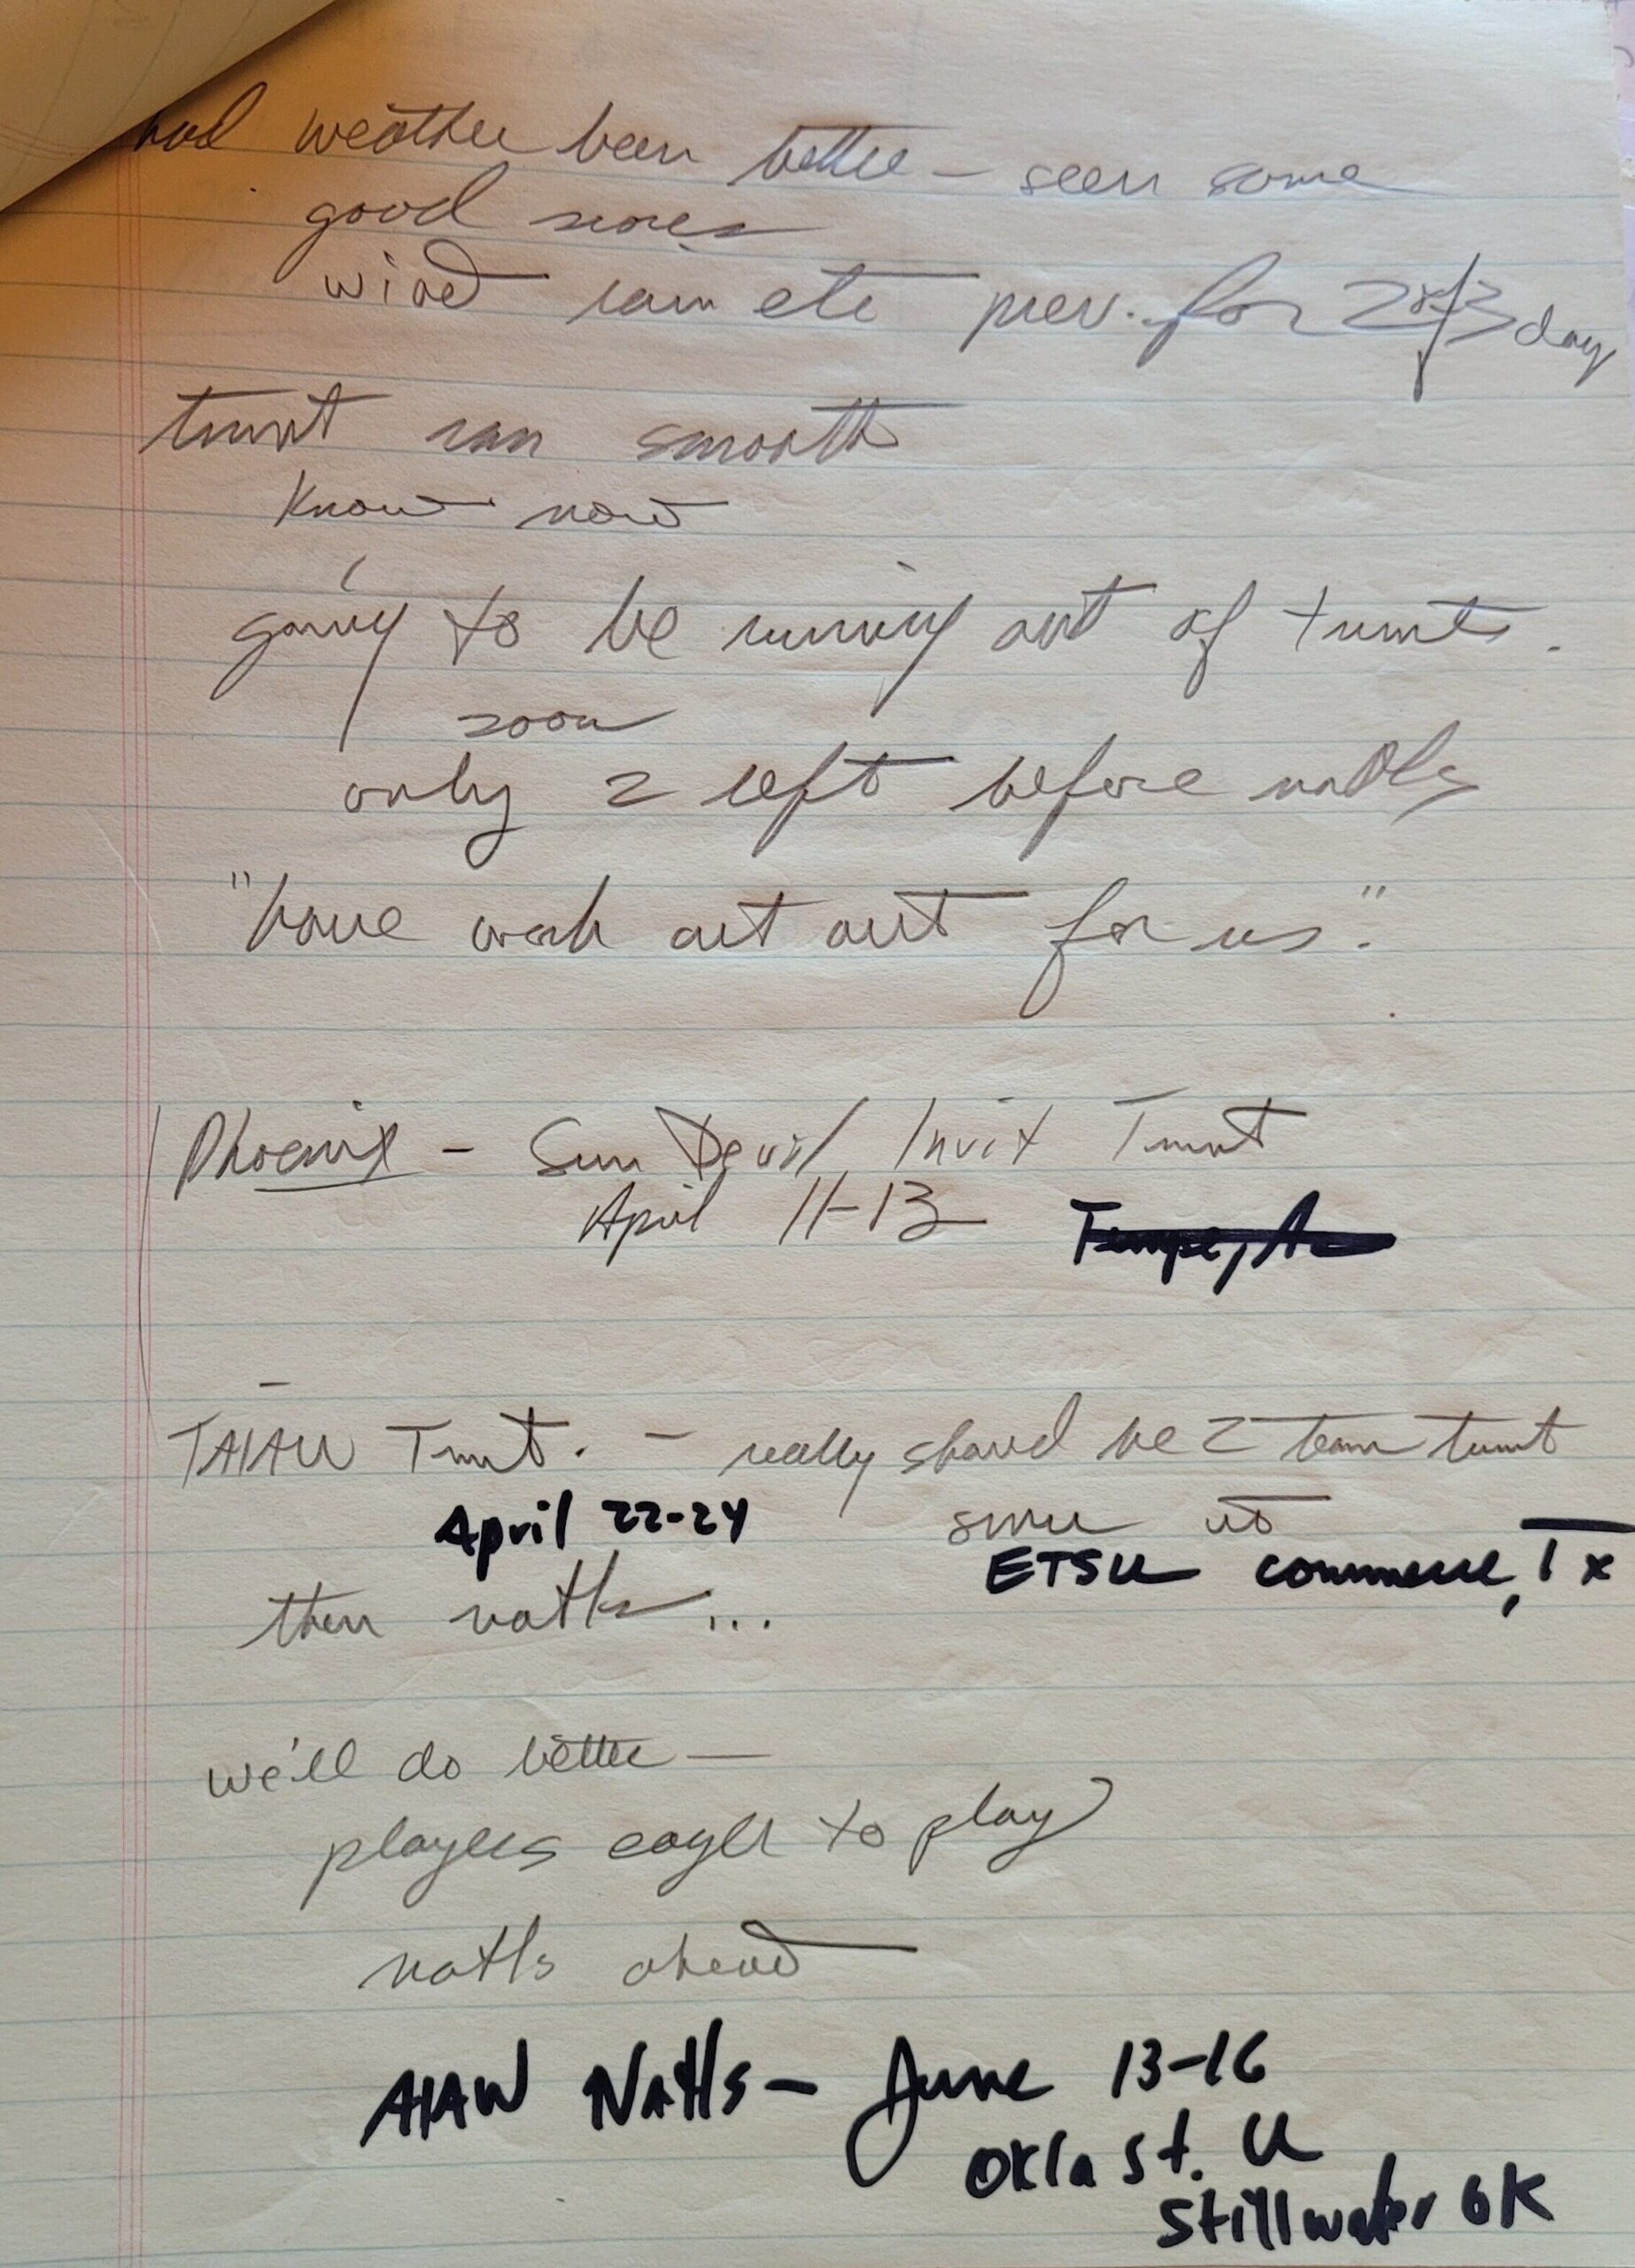 had weather been better - seen some
good scores
wind rain etc prev. for 2 of 3 days
turnt ran smooth
Know now
going to be running out of turnts.
soon
only 2 left before natls
"have work cut out for us."
Phoenix - Sun Devil Invit Tmnt
April 11-13 Tempe, Az
TAIAW Tmnt. - really should be 2 team turnt
April 22-24
ETSU commerce, Tx
then natls...
we'll do better -
players eager to play
natls ahead
AIAW Natls - June 13-16
Okla St. U
Stillwater OK